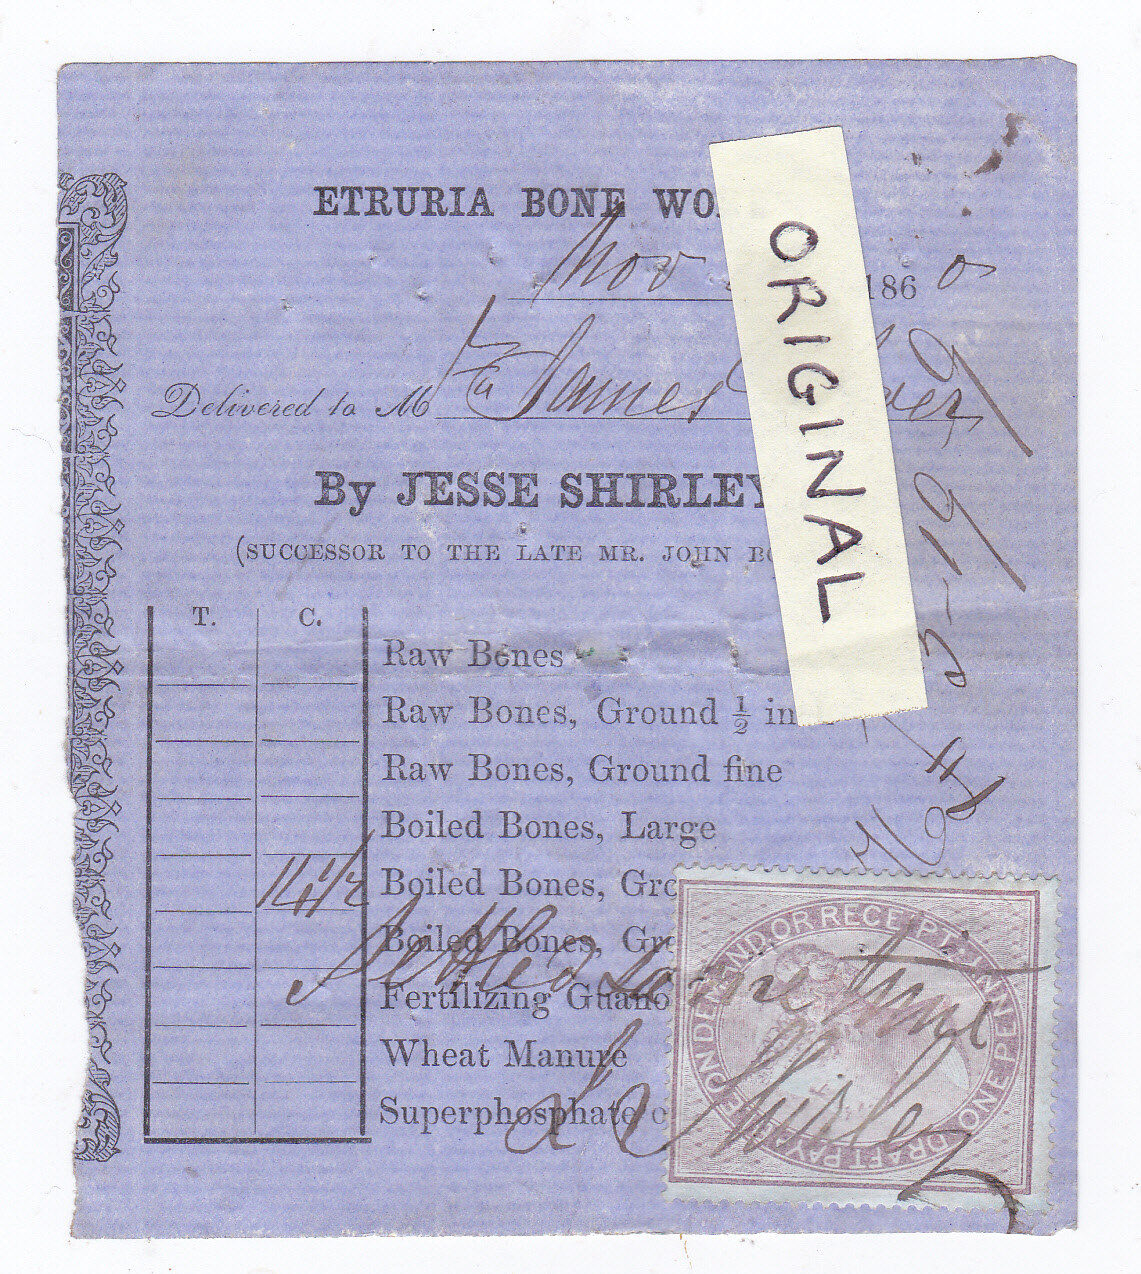 ETRURIA BONE WO
Nov 186 0
Delivered to M James
By JESSE SHIRLEY
(SUCCESSOR TO THE LATE MR. JOHN BO
T. C.
Raw Bones
Raw Bones, Ground ½ in
Raw Bones, Ground fine
Boiled Bones, Large
14 1/2 Boiled Bones, Gro
Boiled Bones, Gr
Fertilizing Guano
Wheat Manure
Superphosphate
Settled same time
J Shirley
ORIGINAL
DRAFT PAYABLE ON DEMAND OR RECEIPT INN PENNY ONE